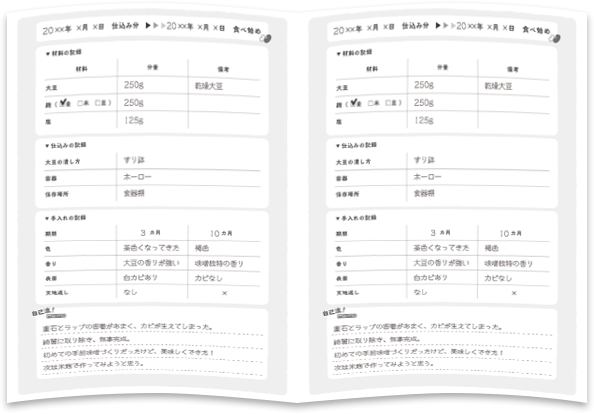 20××年 ×月 ×日 仕込み分 ▶▶▶20××年 ×月 ×日 食べ始め
▼材料の記録
材料 分量 備考
大豆 250g 乾燥大豆
麹(☑麦 □米 □豆) 250g
塩 125g
▼仕込みの記録
大豆の潰し方 すり鉢
容器 ホーロー
保存場所 食器棚
▼手入れの記録
期間 3カ月 10カ月
色 茶色くなってきた 褐色
香り 大豆の香りが強い 味噌独特の香り
表面 白カビあり カビなし
天地返し なし ×
自己流!
重石とラップの密着があまく、カビが生えてしまった。
綺麗に取り除き、無事完成。
初めての手前味噌づくりだったけど、美味しくできた!
次は米麹で作ってみようと思う。
20××年 ×月 ×日 仕込み分 ▶▶▶20××年 ×月 ×日 食べ始め
▼材料の記録
材料 分量 備考
大豆 250g 乾燥大豆
麹(☑麦 □米 □豆) 250g
塩 125g
▼仕込みの記録
大豆の潰し方 すり鉢
容器 ホーロー
保存場所 食器棚
▼手入れの記録
期間 3カ月 10カ月
色 茶色くなってきた 褐色
香り 大豆の香りが強い 味噌独特の香り
表面 白カビあり カビなし
天地返し なし ×
自己流!
重石とラップの密着があまく、カビが生えてしまった。
綺麗に取り除き、無事完成。
初めての手前味噌づくりだったけど、美味しくできた!
次は米麹で作ってみようと思う。